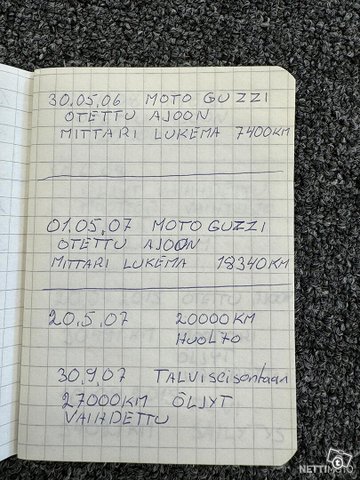 30.05.06 MOTO GUZZI
OTETTU AJOON
MITTARI LUKEMA 7400KM
01.05.07 MOTO GUZZI
OTETTU AJOON
MITTARI LUKEMA 18340KM
20.5.07 20000KM
HUOLTO
30.9.07 TALVISEISONTAAN
27000KM ÖLJYT
VAIHDETTU
NETTIMOTO